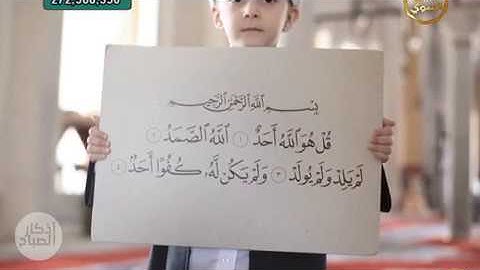 272,500,350
بِسْمِ اللَّهِ الرَّحْمَٰنِ الرَّحِيمِ
قُلْ هُوَ اللَّهُ أَحَدٌ ١ اللَّهُ الصَّمَدُ ٢
لَمْ يَلِدْ وَلَمْ يُولَدْ ٣ وَلَمْ يَكُن لَّهُ كُفُوًا أَحَدٌ ٤
أذكار
الصباح